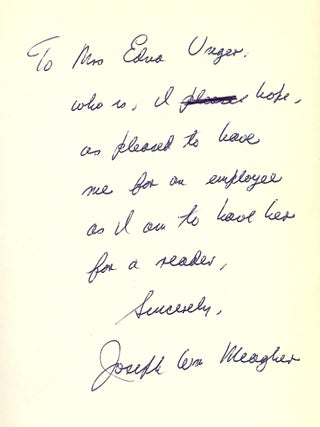 To Mrs Edna Unger,
who is, I please hope,
as pleased to have
me for an employee
as I am to have her
for a reader,
Sincerely,
Joseph Wm Meagher